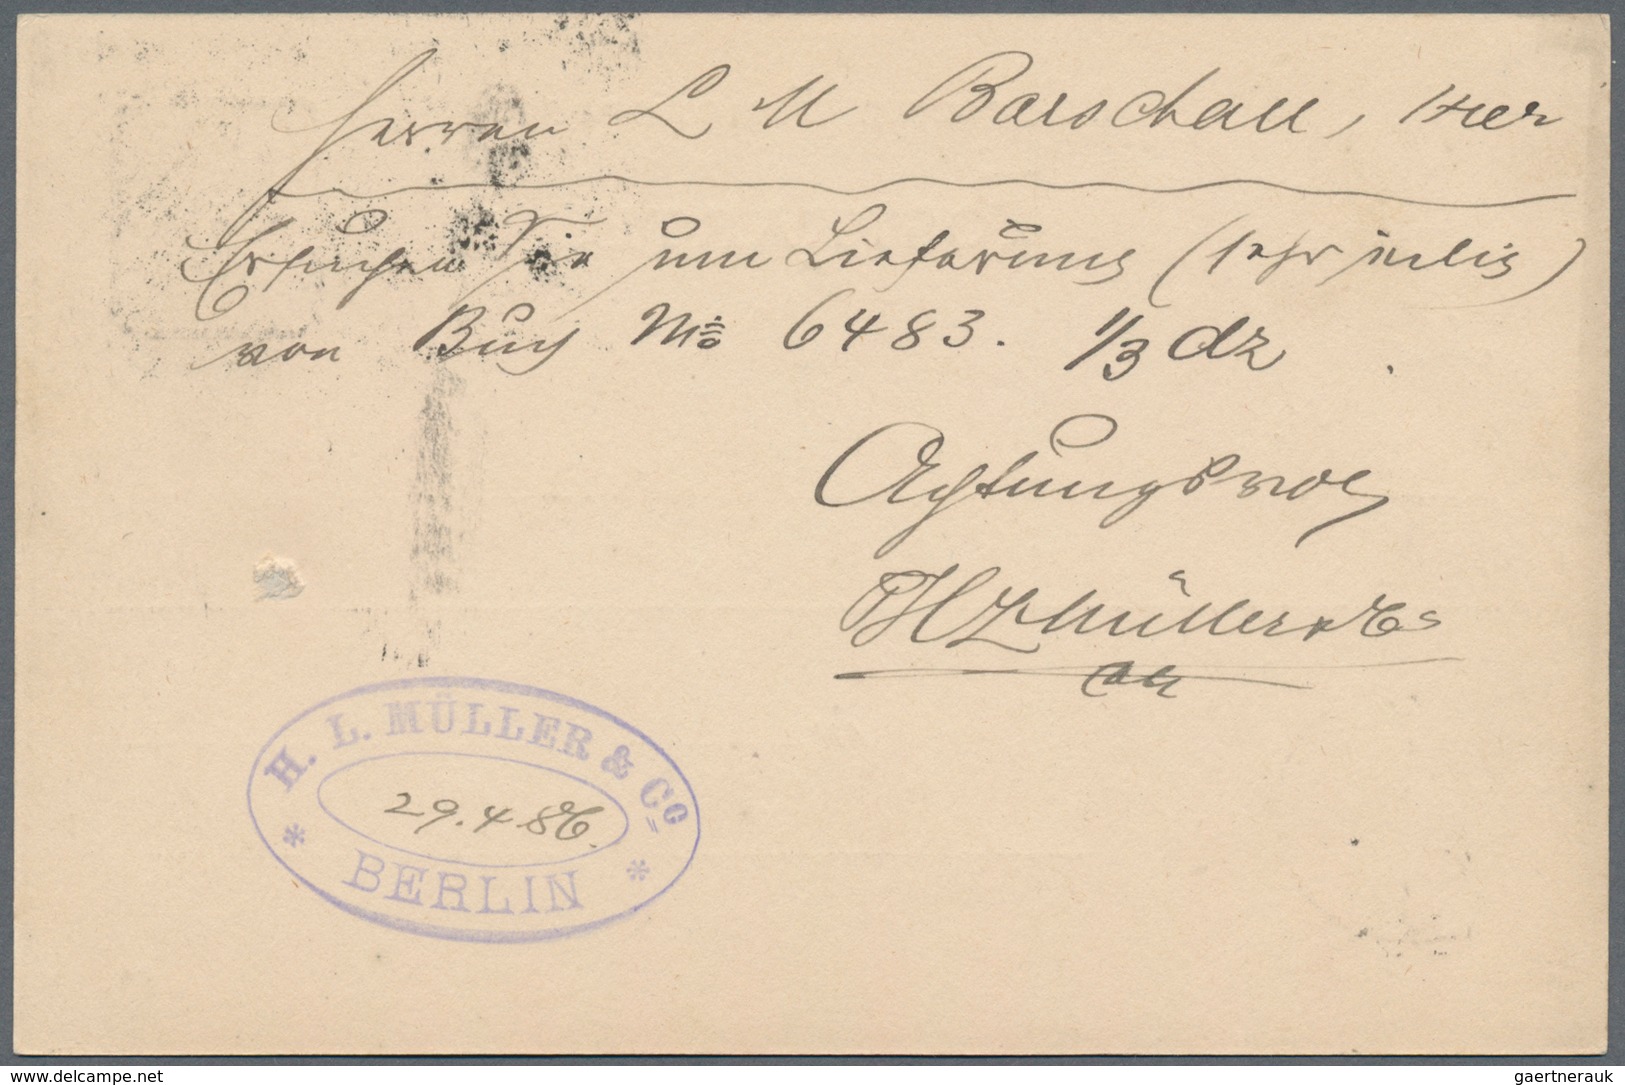 Herren L M Barschall, Hier
Ersuchen Sie um Lieferung (sehr eilig)
von Buch No 6483. 1/3 dz
Achtungsvoll
H L Müller & Co
H. L. MÜLLER & Co
29.4.86.
* BERLIN *
www.delcampe.net
gaertnerauk